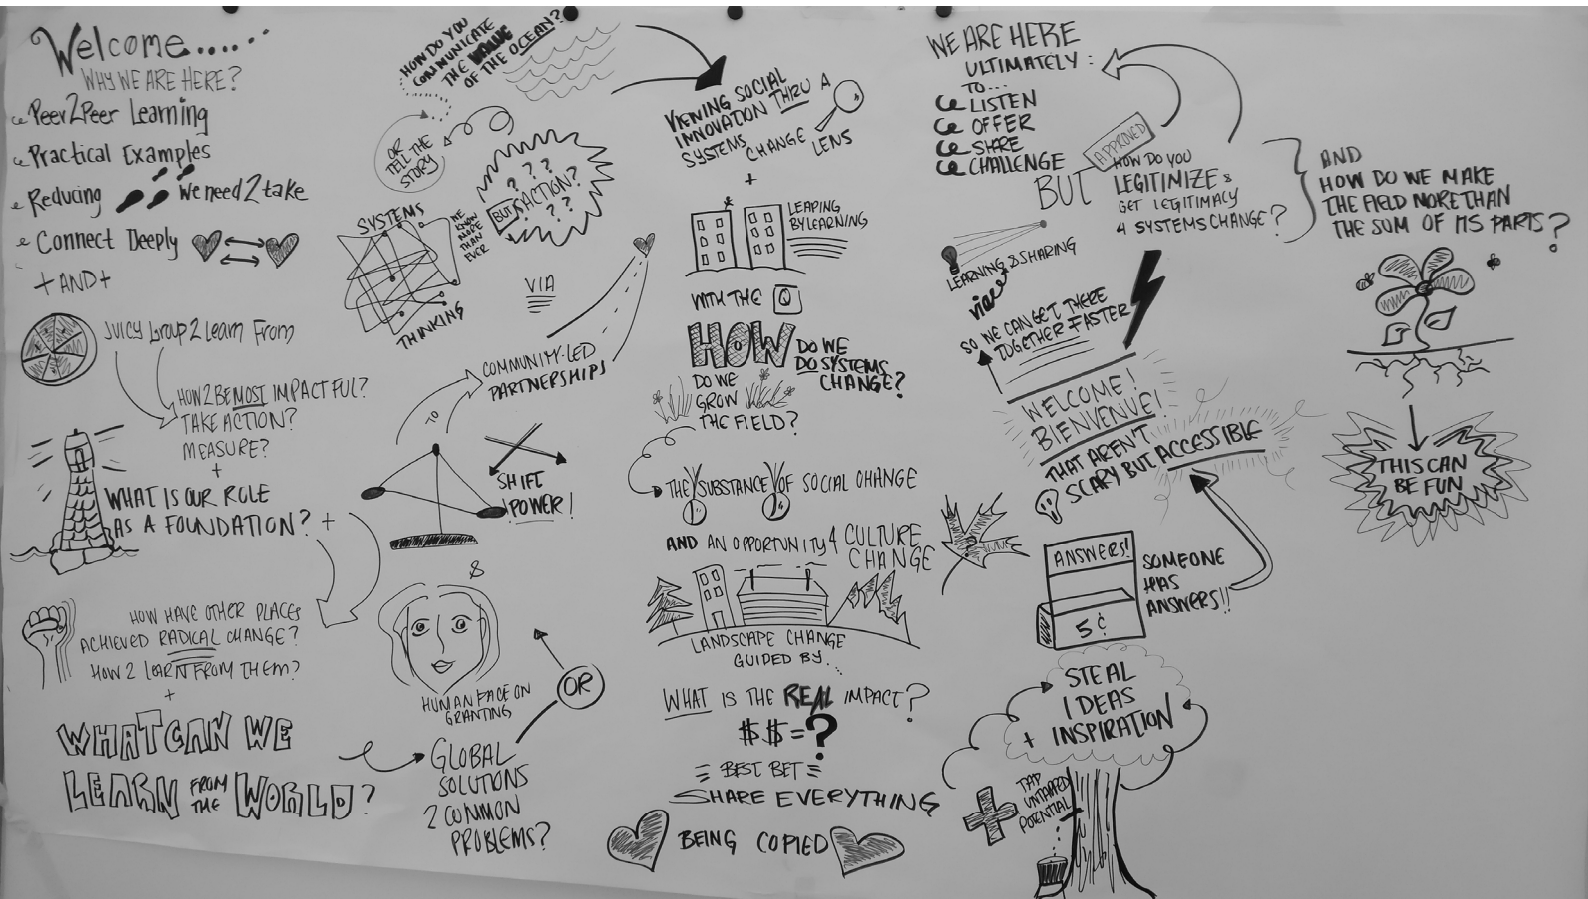 Welcome......
WHY WE ARE HERE?
Peer2Peer Learning
Practical Examples
Reducing We need 2 take
Connect Deeply
+ AND +
JUICY Group 2 Learn From
HOW 2 BE MOST IMPACTFUL?
TAKE ACTION?
MEASURE?
+
WHAT IS OUR ROLE
AS A FOUNDATION? +
HOW HAVE OTHER PLACES
ACHIEVED RADICAL CHANGE?
HOW 2 LEARN FROM THEM?
+
WHAT CAN WE
LEARN FROM THE WORLD?
HOW DO YOU
COMMUNICATE
THE VALUE
OF THE OCEAN?
OR
TELL THE
STORY
? ? ?
BUT ACTION?
? ?
SYSTEMS
THINKING
WE
KNOW
MORE
THAN
EVER
VIA
COMMUNITY-LED
PARTNERSHIPS
TO
SHIFT
POWER!
&
HUMAN FACE ON
GRANTING
OR
GLOBAL
SOLUTIONS
2 COMMON
PROBLEMS?
VIEWING SOCIAL
INNOVATION THRU A
SYSTEMS CHANGE LENS
+
LEAPING
BY LEARNING
WITH THE Q
HOW DO WE
DO SYSTEMS
CHANGE?
DO WE
GROW
THE FIELD?
THE SUBSTANCE OF SOCIAL CHANGE
AND AN OPPORTUNITY 4 CULTURE
CHANGE
LANDSCAPE CHANGE
GUIDED BY...
WHAT IS THE REAL IMPACT?
$$=?
= BEST BET =
SHARE EVERYTHING
BEING COPIED
WE ARE HERE
ULTIMATELY:
TO...
LISTEN
OFFER
SHARE
CHALLENGE
BUT
APPROVED
HOW DO YOU
LEGITIMIZE &
GET LEGITIMACY
4 SYSTEMS CHANGE?
LEARNING & SHARING
SO WE CAN GET THERE
TOGETHER FASTER
WELCOME!
BIENVENUE!
THAT AREN'T
SCARY BUT ACCESSIBLE
ANSWERS!
5¢
SOMEONE
HAS
ANSWERS!!
STEAL
IDEAS
+ INSPIRATION
TAP
UNTAPPED
POTENTIAL
AND
HOW DO WE MAKE
THE FIELD MORE THAN
THE SUM OF ITS PARTS?
THIS CAN
BE FUN